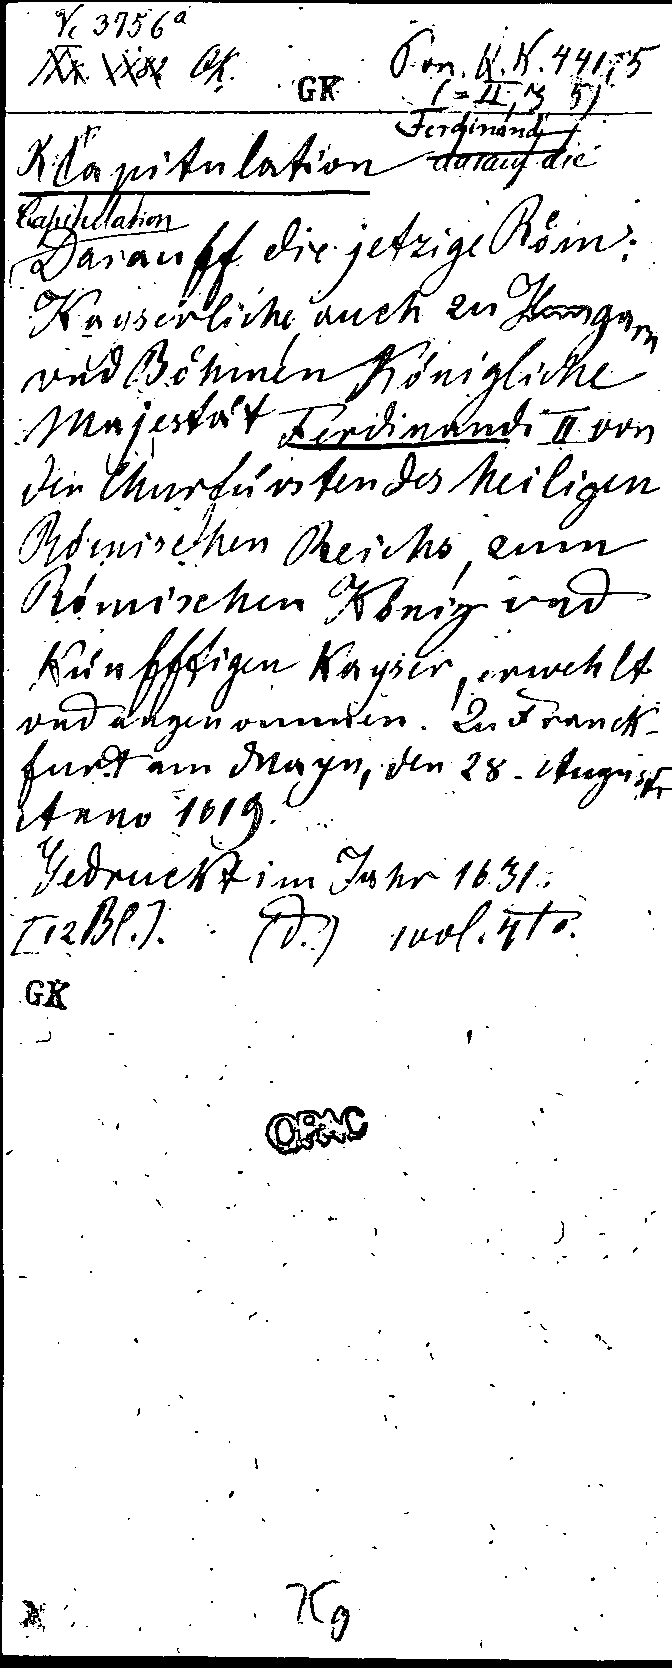 Vc 3756a
AK. Pon. K. K. 441,5
GK (=II, 3 5)
Ferdinandi
Kapitulation darauf die
Capitulation
Darauff die jetzige Röm:
Kayserliche auch zu Hungarn
und Böhmen Königliche
Majestät Ferdinandi II von
den Churfürsten des heiligen
Römischen Reichs, zum
Römischen König und
Künfftigen Kayser, erwehlt
und angenommen. Zu Franck-
furt am Mayn, den 28. August
Anno 1619.
Gedruckt im Jahr 1631.
[12 Bl.]. (d.) 4to.
GK
OPAC
Kg